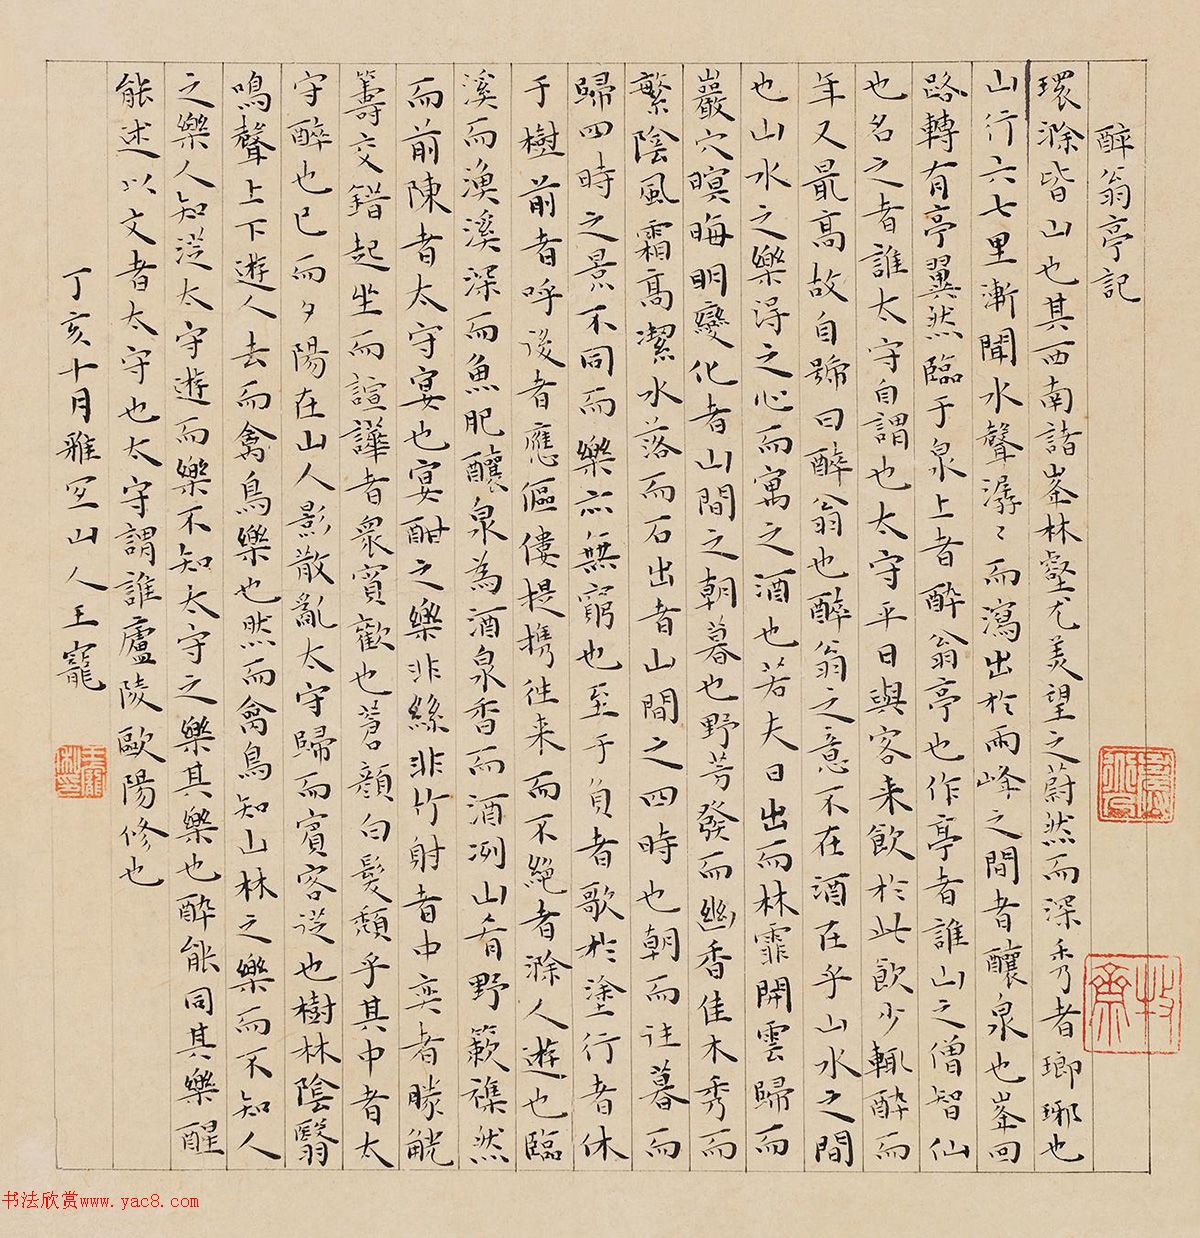 醉翁亭記
環滁皆山也其西南諸峯林壑尤美望之蔚然而深秀者瑯琊也
山行六七里漸聞水聲潺〻而瀉出於兩峰之間者釀泉也峯回
路轉有亭翼然臨于泉上者醉翁亭也作亭者誰山之僧智仙
也名之者誰太守自謂也太守平日與客来飲於此飲少輒醉而
年又最高故自號曰醉翁也醉翁之意不在酒在乎山水之間
也山水之樂得之心而寓之酒也若夫日出而林霏開雲歸而
巖穴暝晦明變化者山間之朝暮也野芳發而幽香佳木秀而
繁陰風霜高潔水落而石出者山間之四時也朝而往暮而
歸四時之景不同而樂亦無窮也至于負者歌於塗行者休
于樹前者呼後者應傴僂提携往来而不絕者滁人遊也臨
溪而漁溪深而魚肥釀泉為酒泉香而酒冽山肴野簌襍然
而前陳者太守宴也宴酣之樂非絲非竹射者中奕者勝觥
籌交錯起坐而諠譁者衆賓歡也蒼顏白髮頹乎其中者太
守醉也已而夕陽在山人影散亂太守歸而賓客從也樹林陰翳
鳴聲上下遊人去而禽鳥樂也然而禽鳥知山林之樂而不知人
之樂人知從太守遊而樂不知太守之樂其樂也醉能同其樂醒
能述以文者太守也太守謂誰廬陵歐陽修也
丁亥十月雅宜山人王寵
王寵私印
书法欣赏www.yac8.com